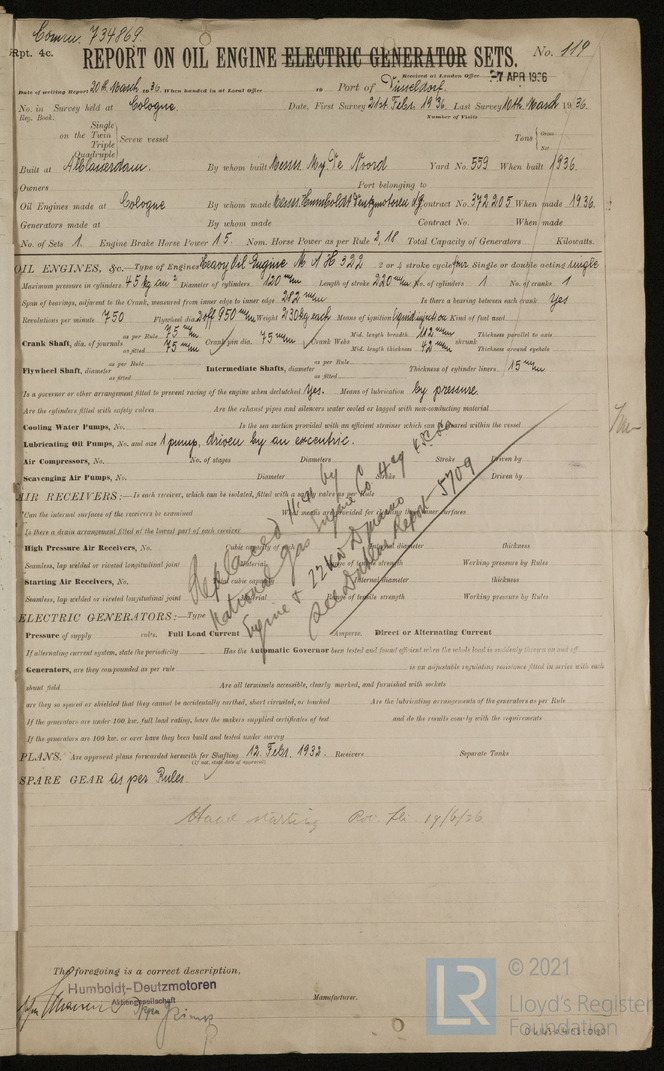 Comm. 734869.
Rpt. 4c.
REPORT ON OIL ENGINE ELECTRIC GENERATOR SETS. No. 119
Received at London Office 7 APR 1936
Date of writing Report 20th March 1936. When handed in at Local Office to Port of Düsseldorf.
No. in Survey held at Cologne. Date, First Survey 21st Febr. 1936. Last Survey 10th March 1936.
Reg. Book. Number of Visits
Single
on the Twin Screw vessel Tons Gross
Triple Net
Quadruple
Built at Alblasserdam. By whom built Messrs. Yard No. 559 When built 1936.
Owners Port belonging to
Oil Engines made at Cologne By whom made Messrs. Humboldt-Deutzmotoren AG Contract No. 372205 When made 1936.
Generators made at By whom made Contract No. When made
No. of Sets 1. Engine Brake Horse Power 15. Nom. Horse Power as per Rule 2,18 Total Capacity of Generators Kilowatts.
OIL ENGINES, &c.—Type of Engines Heavy Oil Engine M A H 322 2 or 4 stroke cycle four Single or double acting single
Maximum pressure in cylinders 45 kg cm² Diameter of cylinders 120 mm Length of stroke 220 mm No. of cylinders 1 No. of cranks 1
Span of bearings, adjacent to the Crank, measured from inner edge to inner edge 282 mm Is there a bearing between each crank Yes
Revolutions per minute 750 Flywheel dia. 2 off 950 mm Weight 230 kg each Means of ignition Kind of fuel used
Crank Shaft, dia. of journals as per Rule 75 mm as fitted 75 mm Crank pin dia. 75 mm Crank Webs Mid. length breadth 112 mm Mid. length thickness 42 mm shrunk Thickness parallel to axis Thickness around eyehole
Flywheel Shaft, diameter as per Rule as fitted Intermediate Shafts, diameter as per Rule as fitted Thickness of cylinder liners 15 mm
Is a governor or other arrangement fitted to prevent racing of the engine when declutched Yes. Means of lubrication by pressure.
Are the cylinders fitted with safety valves Are the exhaust pipes and silencers water cooled or lagged with non-conducting material
Cooling Water Pumps, No. Is the sea suction provided with an efficient strainer which can be cleared within the vessel
Lubricating Oil Pumps, No. and size 1 pump, driven by an excentric.
Air Compressors, No. No. of stages Diameters Stroke Driven by
Scavenging Air Pumps, No. Diameter Stroke Driven by
AIR RECEIVERS:—Is each receiver, which can be isolated, fitted with a safety valve as per Rule
Can the internal surfaces of the receivers be examined What means are provided for cleaning their inner surfaces
Is there a drain arrangement fitted at the lowest part of each receiver
High Pressure Air Receivers, No. Cubic capacity of each Internal diameter thickness
Seamless, lap welded or riveted longitudinal joint Material Range of tensile strength Working pressure by Rules
Starting Air Receivers, No. Total cubic capacity Internal diameter thickness
Seamless, lap welded or riveted longitudinal joint Material Range of tensile strength Working pressure by Rules
Replaced 11.41 by
National Gas Engine Co
Engine & 22 KW Dynamo
See Dublin Report 5709
ELECTRIC GENERATORS:—Type
Pressure of supply volts. Full Load Current Amperes. Direct or Alternating Current
If alternating current system, state the periodicity Has the Automatic Governor been tested and found efficient when the whole load is suddenly thrown on and off
Generators, are they compounded as per rule is an adjustable regulating resistance fitted in series with each
shunt field Are all terminals accessible, clearly marked, and furnished with sockets
are they so spaced or shielded that they cannot be accidentally earthed, short circuited, or touched Are the lubricating arrangements of the generators as per Rule
If the generators are under 100 kw. full load rating, have the makers supplied certificates of test and do the results comply with the requirements
If the generators are 100 kw. or over have they been built and tested under survey
PLANS. Are approved plans forwarded herewith for Shafting 12. Febr. 1932. Receivers Separate Tanks
(If not, state date of approval)
SPARE GEAR as per Rules.
Hand starting 19/6/36
The foregoing is a correct description,
Humboldt-Deutzmotoren
Aktiengesellschaft
Manufacturer.
LR © 2021
Lloyd's Register
Foundation